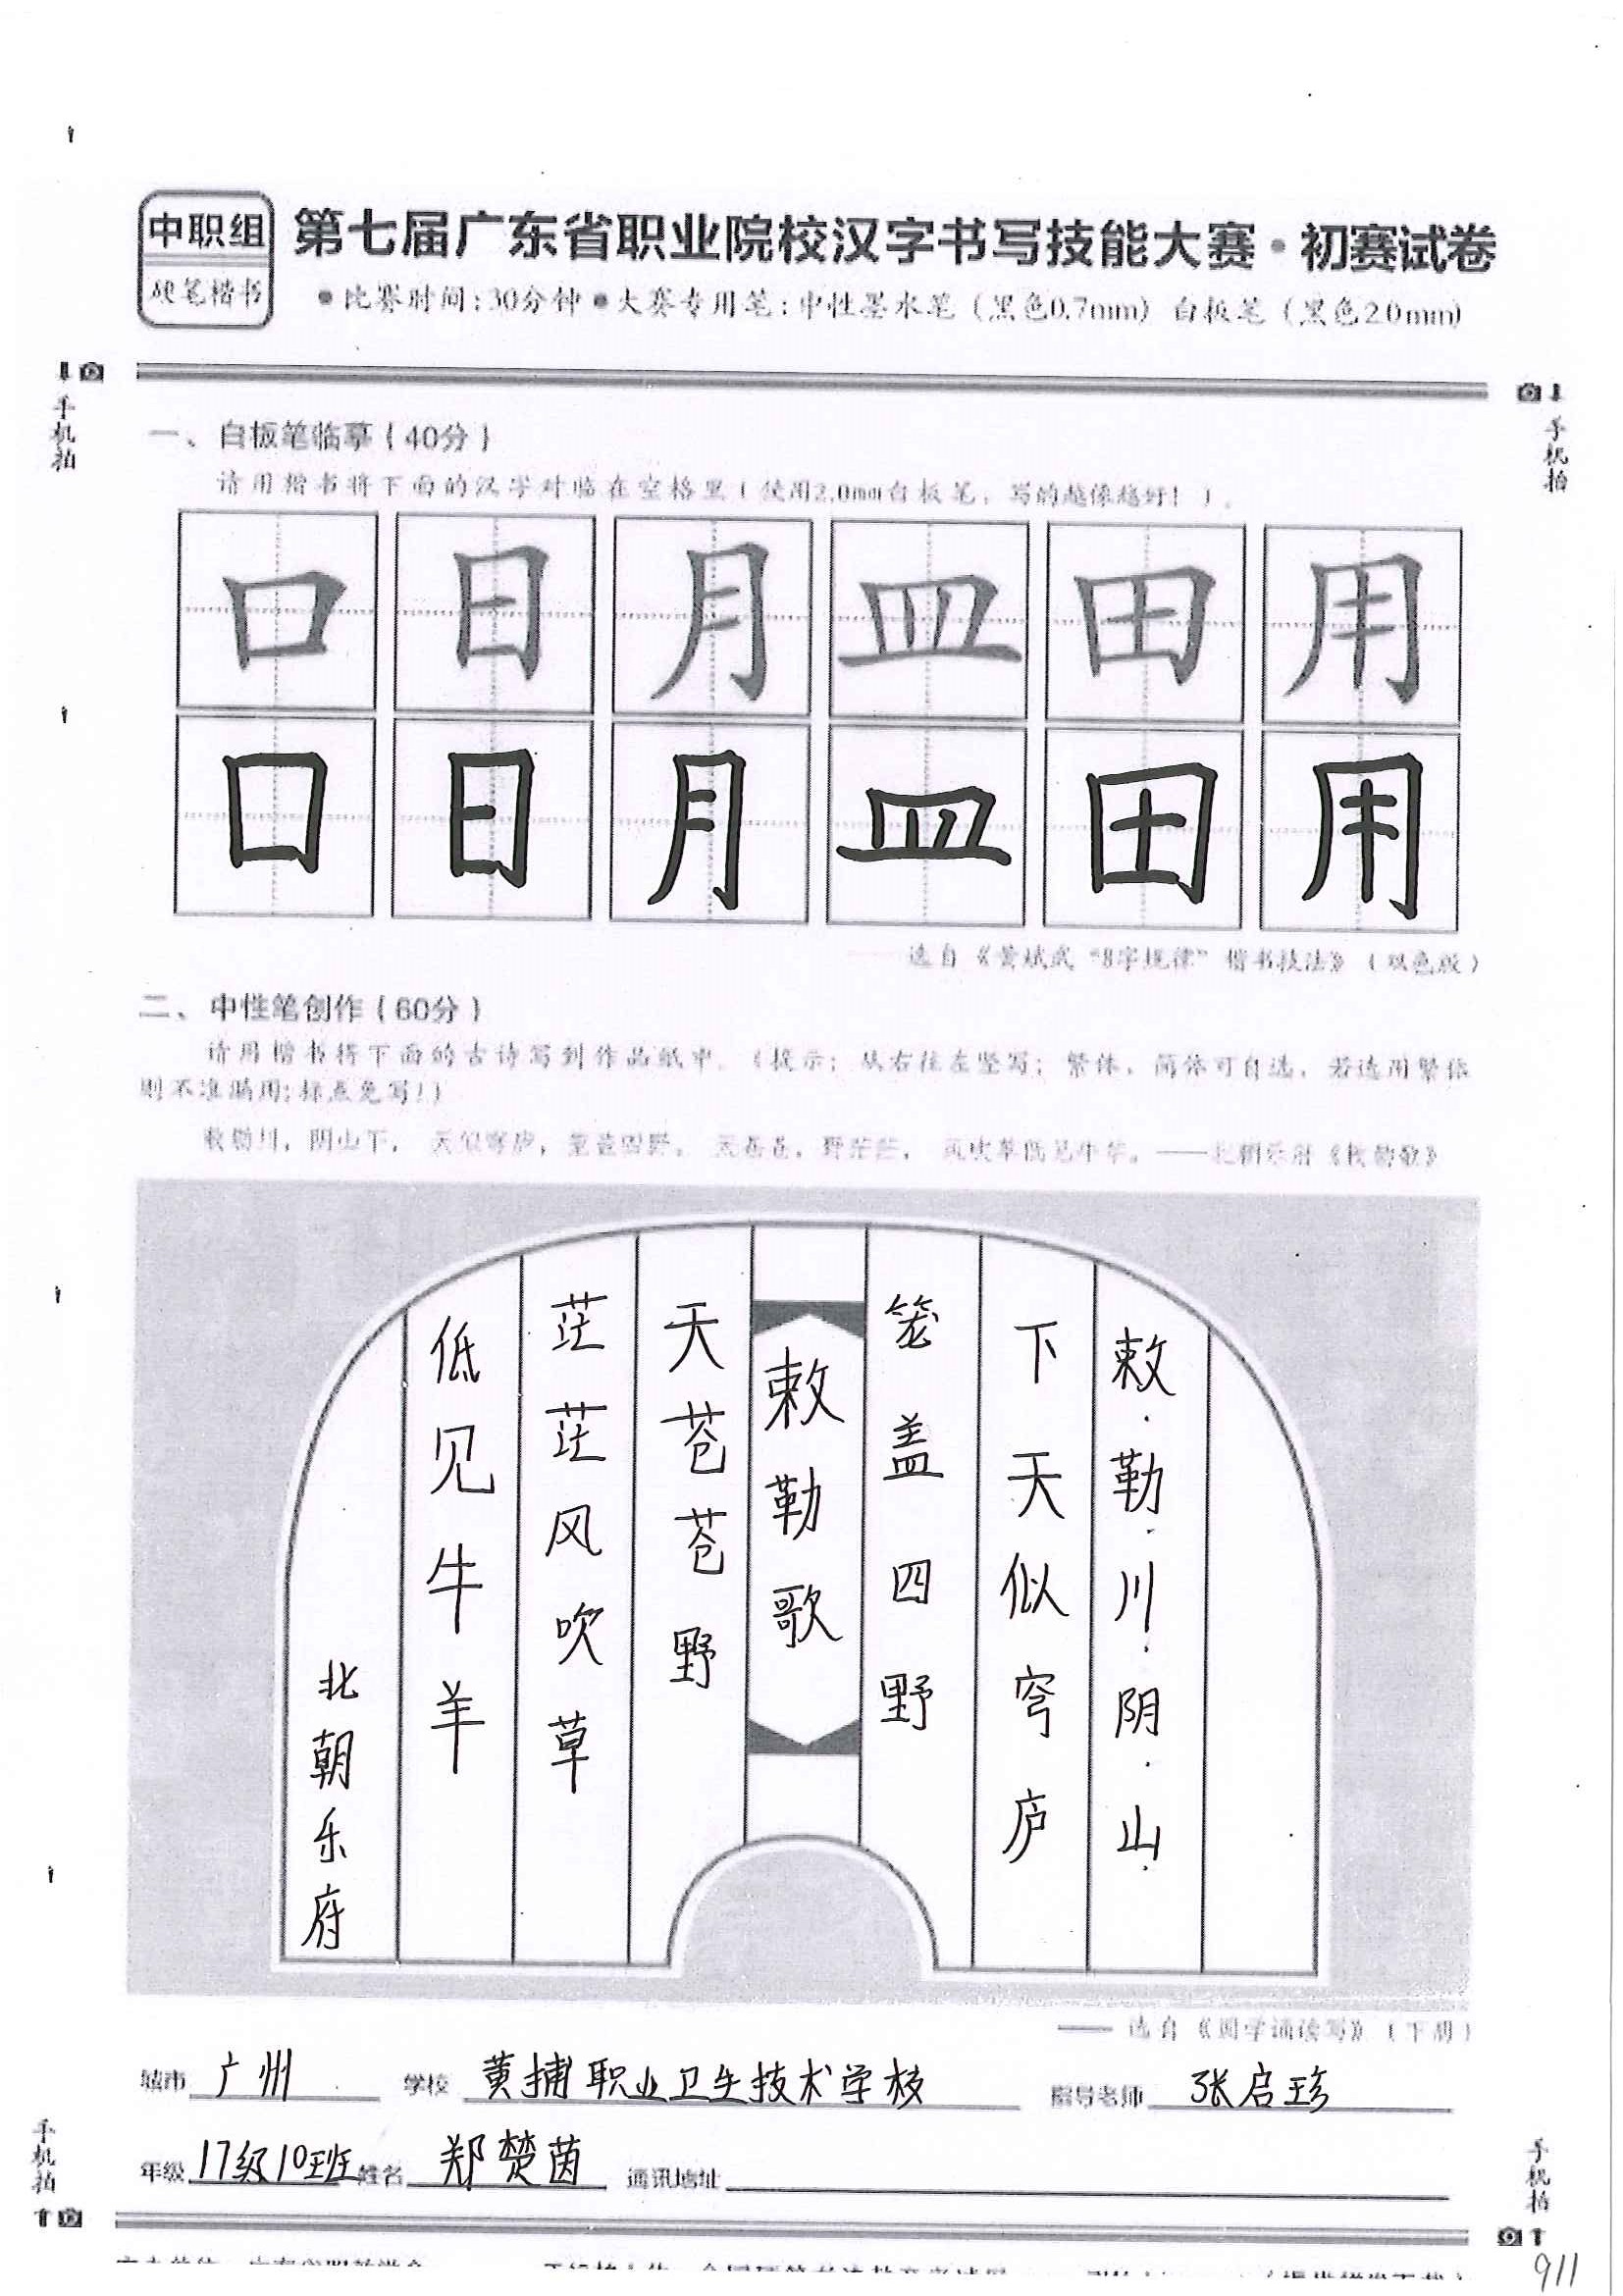 中职组
硬笔楷书
第七届广东省职业院校汉字书写技能大赛·初赛试卷
●比赛时间:30分钟 ●大赛专用笔:中性墨水笔(黑色0.7mm) 白板笔(黑色2.0mm)
手机拍
手机拍
一、白板笔临摹(40分)
请用楷书将下面的汉字对临在空格里(使用2.0mm白板笔,写的越像越好!)。
口 日 月 皿 田 用
口 日 月 皿 田 用
选自《黄斌武“8字规律”楷书技法》(双色版)
二、中性笔创作(60分)
请用楷书将下面的古诗写到作品纸中。(提示:从右往左竖写;繁体,简体可自选,若选用繁体
则不准漏用;标点免写!)
敕勒川,阴山下,天似穹庐,笼盖四野。天苍苍,野茫茫,风吹草低见牛羊。——北朝乐府《敕勒歌》
敕勒川阴山
下天似穹庐
笼盖四野
敕勒歌
天苍苍野
茫茫风吹草
低见牛羊
北朝乐府
—— 选自《同学诵读写》(下册)
城市 广州 学校 黄捕职业卫生技术学校 指导老师 张启珍
年级 17级10班 姓名 郑楚茵 通讯地址
手机拍
手机拍
911